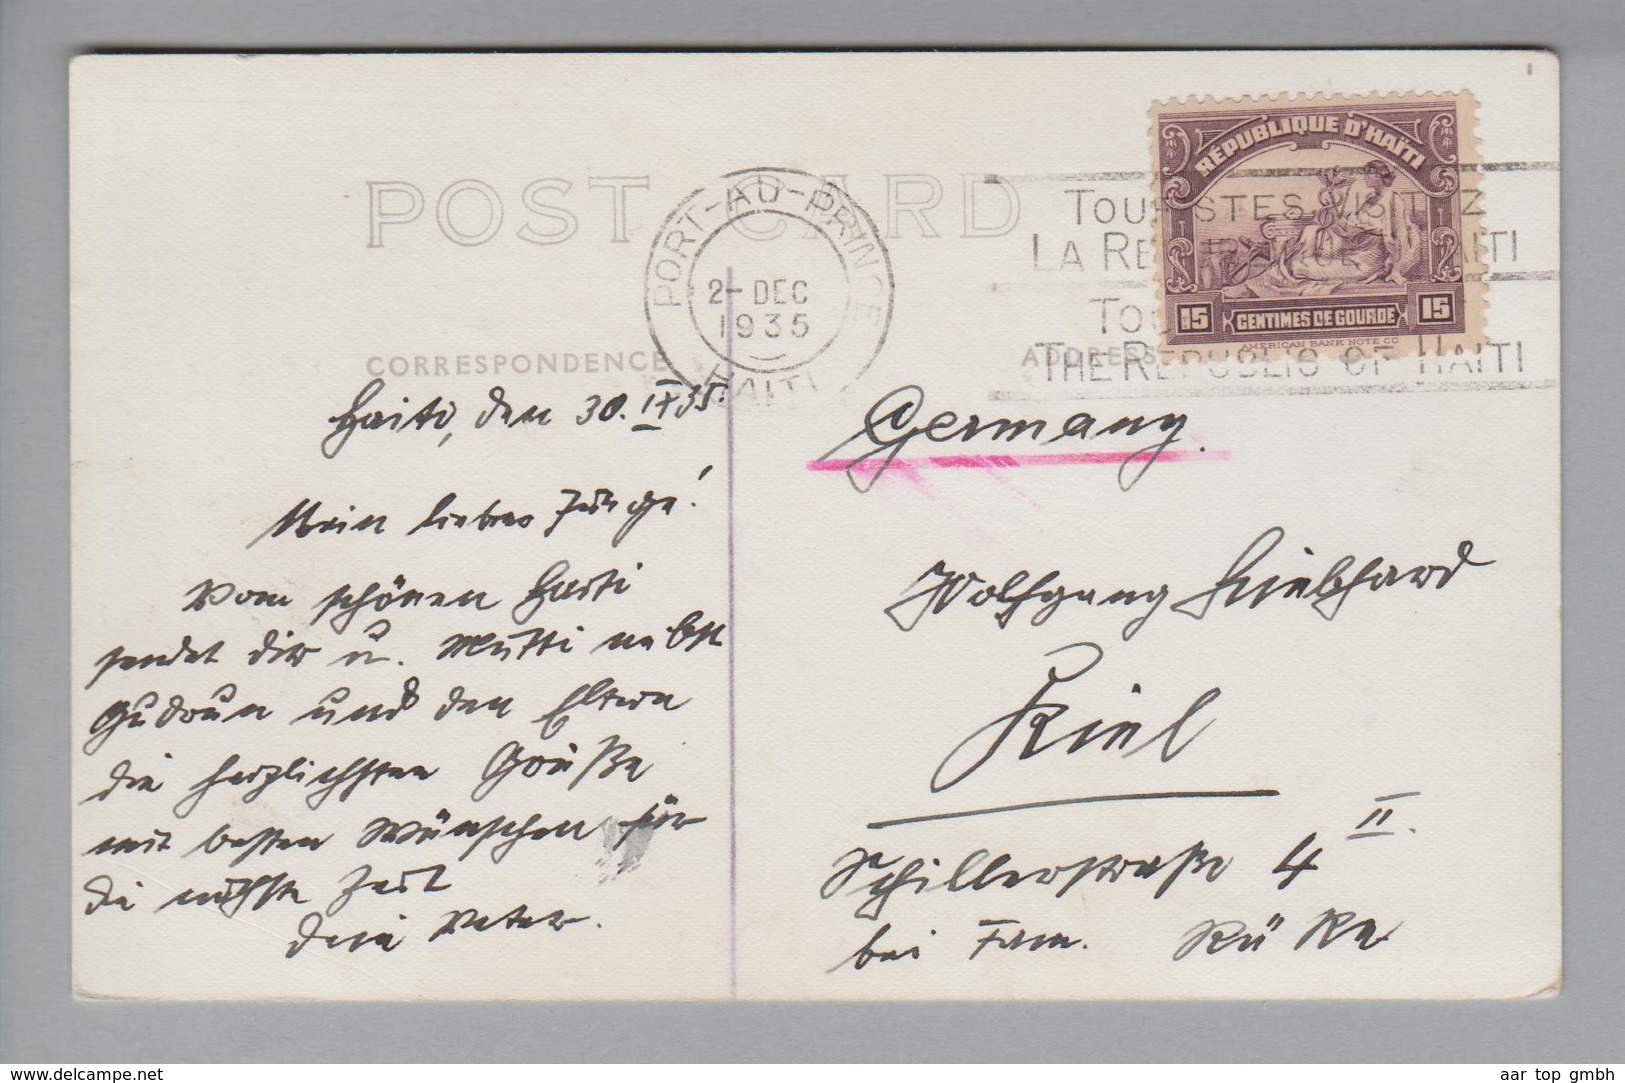 POST CARD
PORT-AU-PRINCE
2-DEC
1935
HAITI
RÉPUBLIQUE D'HAÏTI
15 CENTIMES DE GOURDE 15
AMERICAN BANK NOTE CO
LA RE HAITI
THE REPUBLIC OF HAITI
CORRESPONDENCE
ADDRESS
Haiti, den 30. IX 35.
Mein lieber Junge!
Vom schönen Haiti
sendet dir u. Mutti nebst
Gudrun und den Eltern
die herzlichsten Grüße
mit besten Wünschen für
die nächste Zeit
Dein Vater.
Germany.
Wolfgang
Kiel
Schillerstraße 4 II.
bei Fam. Rüke
www.delcampe.net
aar top gmbh